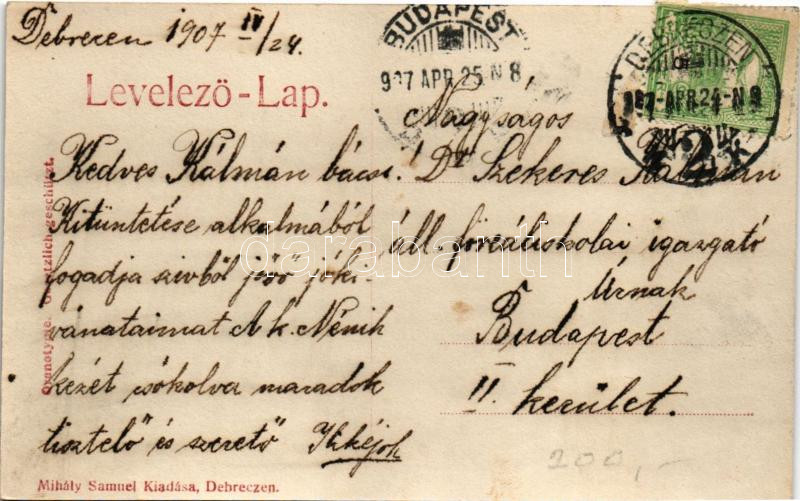 Debreczen 1907 IV/24.
BUDAPEST
907 APR. 25. N 8
DEBRECZEN
907-APR. 24.-N 9
2
Levelező-Lap.
Nagyságos
Dr Szekeres Kálmán
áll. főreáliskolai igazgató
Úrnak
Budapest
II. kerület.
Kedves Kálmán bácsi!
Kitüntetése alkalmából
fogadja szivből jövő jóki-
vánataimat A k. Nénik
kezét csókolva maradok
tisztelő és szerető
Gesetzlich geschützt.
Mihály Samuel Kiadása, Debreczen.
200,-
darabanth